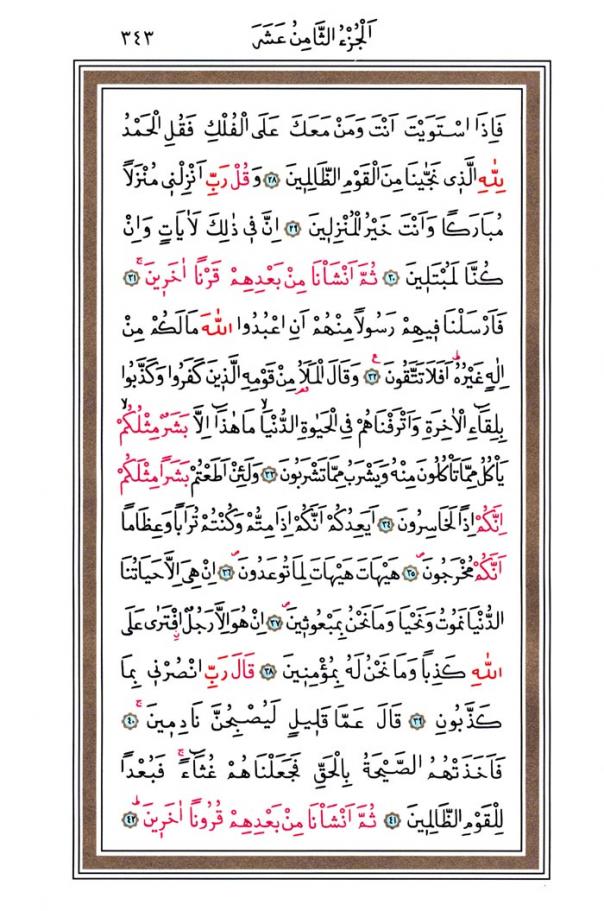 اَلْجُزْءُ الثَّامِنُ عَشَرَ ٣٤٣
فَاِذَا اسْتَوَيْتَ اَنْتَ وَمَنْ مَعَكَ عَلَى الْفُلْكِ فَقُلِ الْحَمْدُ
لِلّٰهِ الَّذٖى نَجّٰينَا مِنَ الْقَوْمِ الظَّالِمٖينَ ٢٨ وَقُلْ رَبِّ اَنْزِلْنٖى مُنْزَلًا
مُبَارَكًا وَاَنْتَ خَيْرُ الْمُنْزِلٖينَ ٢٩ اِنَّ فٖى ذٰلِكَ لَاٰيَاتٍ وَاِنْ
كُنَّا لَمُبْتَلٖينَ ٣٠ ثُمَّ اَنْشَاْنَا مِنْ بَعْدِهِمْ قَرْنًا اٰخَرٖينَ ۚ ٣١
فَاَرْسَلْنَا فٖيهِمْ رَسُولًا مِنْهُمْ اَنِ اعْبُدُوا اللّٰهَ مَا لَكُمْ مِنْ
اِلٰهٍ غَيْرُهُ ۜ اَفَلَا تَتَّقُونَ ۟ ٣٢ وَقَالَ الْمَلَاُ مِنْ قَوْمِهِ الَّذٖينَ كَفَرُوا وَكَذَّبُوا
بِلِقَٓاءِ الْاٰخِرَةِ وَاَتْرَفْنَاهُمْ فِى الْحَيٰوةِ الدُّنْيَا ۙ مَا هٰذَٓا اِلَّا بَشَرٌ مِثْلُكُمْ ۙ
يَاْكُلُ مِمَّا تَاْكُلُونَ مِنْهُ وَيَشْرَبُ مِمَّا تَشْرَبُونَ ٣٣ وَلَئِنْ اَطَعْتُمْ بَشَرًا مِثْلَكُمْ
اِنَّكُمْ اِذًا لَخَاسِرُونَ ٣٤ اَيَعِدُكُمْ اَنَّكُمْ اِذَا مِتُّمْ وَكُنْتُمْ تُرَابًا وَعِظَامًا
اَنَّكُمْ مُخْرَجُونَ ٣٥ هَيْهَاتَ هَيْهَاتَ لِمَا تُوعَدُونَ ٣٦ اِنْ هِىَ اِلَّا حَيَاتُنَا
الدُّنْيَا نَمُوتُ وَنَحْيَا وَمَا نَحْنُ بِمَبْعُوثٖينَ ٣٧ اِنْ هُوَ اِلَّا رَجُلٌ افْتَرٰى عَلَى
اللّٰهِ كَذِبًا وَمَا نَحْنُ لَهُ بِمُؤْمِنٖينَ ٣٨ قَالَ رَبِّ انْصُرْنٖى بِمَا
كَذَّبُونِ ٣٩ قَالَ عَمَّا قَلٖيلٍ لَيُصْبِحُنَّ نَادِمٖينَ ۚ ٤٠
فَاَخَذَتْهُمُ الصَّيْحَةُ بِالْحَقِّ فَجَعَلْنَاهُمْ غُثَٓاءً ۚ فَبُعْدًا
لِلْقَوْمِ الظَّالِمٖينَ ٤١ ثُمَّ اَنْشَاْنَا مِنْ بَعْدِهِمْ قُرُونًا اٰخَرٖينَ ۜ ٤٢